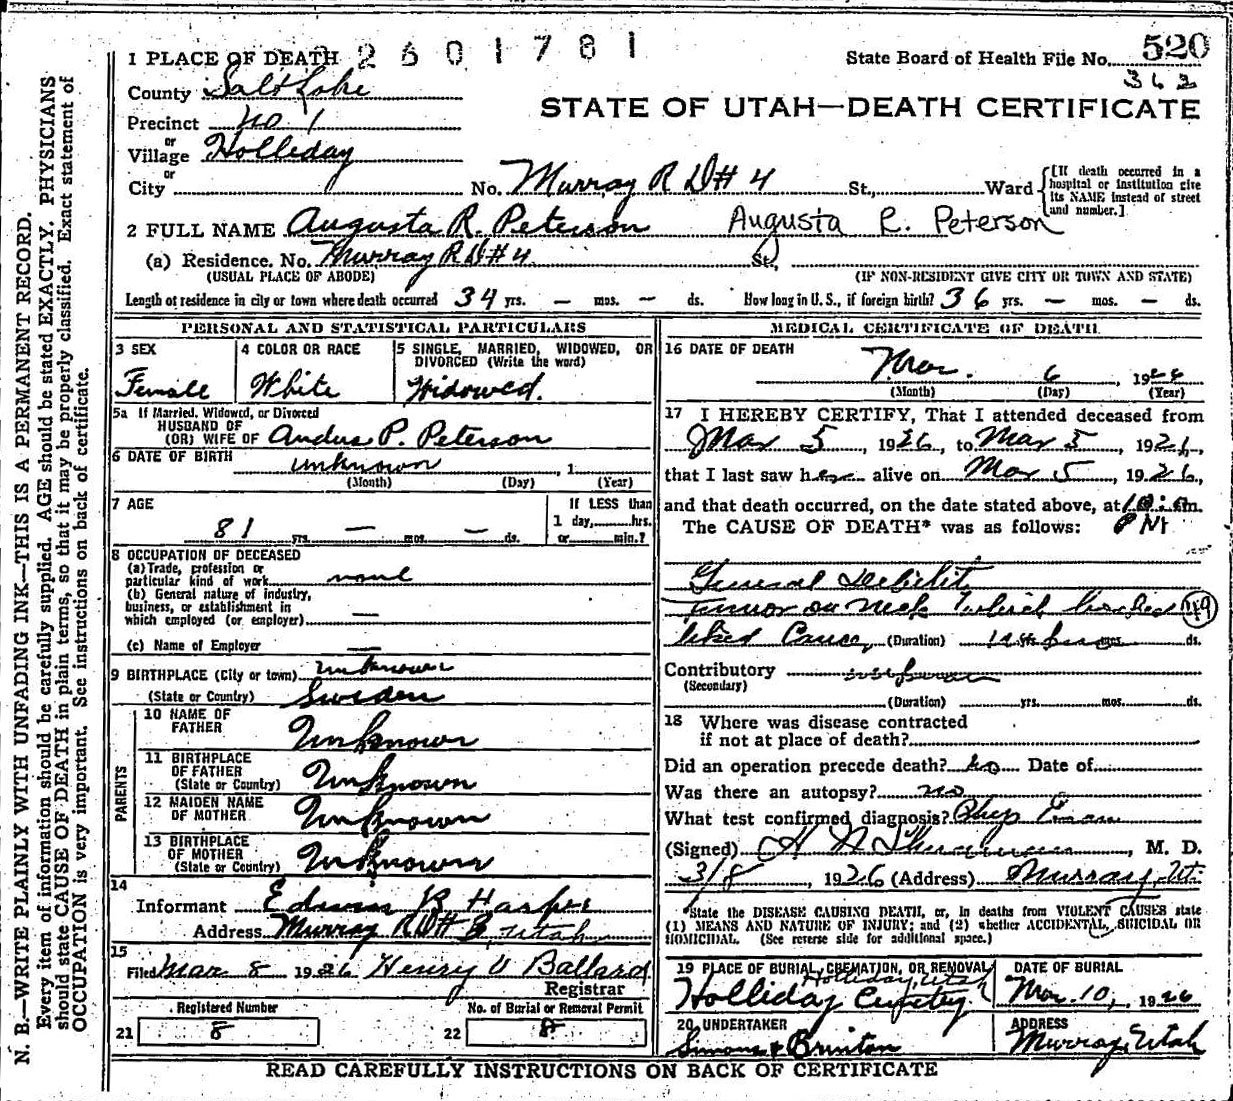 1 PLACE OF DEATH 2601781
State Board of Health File No. 520
362
County Salt Lake
STATE OF UTAH—DEATH CERTIFICATE
Precinct no 1
or
Village Holliday
or
City No. Murray R D# 4 St., Ward [If death occurred in a hospital or institution give its NAME instead of street and number.]
2 FULL NAME Augusta R. Peterson Augusta R. Peterson
(a) Residence. No. Murray R D# 4 St.,
(USUAL PLACE OF ABODE) (IF NON-RESIDENT GIVE CITY OR TOWN AND STATE)
Length of residence in city or town where death occurred 34 yrs. — mos. — ds. How long in U. S., if foreign birth? 36 yrs. — mos. — ds.
PERSONAL AND STATISTICAL PARTICULARS
3 SEX
Female
4 COLOR OR RACE
White
5 SINGLE, MARRIED, WIDOWED, OR
DIVORCED (Write the word)
Widowed.
5a If Married, Widowed, or Divorced
HUSBAND OF
(OR) WIFE OF Andus P. Peterson
6 DATE OF BIRTH unknown , 1
(Month) (Day) (Year)
7 AGE
81 yrs. — mos. — ds.
If LESS than
1 day, hrs.
or min.?
8 OCCUPATION OF DECEASED
(a) Trade, profession or
particular kind of work none
(b) General nature of industry,
business, or establishment in
which employed (or employer) —
(c) Name of Employer —
9 BIRTHPLACE (City or town) Unknown
(State or Country) Sweden
PARENTS
10 NAME OF
FATHER Unknown
11 BIRTHPLACE
OF FATHER
(State or Country) Unknown
12 MAIDEN NAME
OF MOTHER Unknown
13 BIRTHPLACE
OF MOTHER
(State or Country) Unknown
14
Informant Edwin B Harper
Address Murray R D# , Utah
15
Filed Mar 8 1926 Henry V Ballard
Registrar
Registered Number
21 8
No. of Burial or Removal Permit
22 8
MEDICAL CERTIFICATE OF DEATH
16 DATE OF DEATH
Mar. 6 , 1926
(Month) (Day) (Year)
17 I HEREBY CERTIFY, That I attended deceased from
Mar 5 , 1926, to Mar 5 , 1926,
that I last saw her alive on Mar 5 , 1926,
and that death occurred, on the date stated above, at 10 m.
The CAUSE OF DEATH* was as follows: PM
General Debility
Tumor on neck which looked 49
liked Cancer (Duration) mos. ds.
Contributory
(Secondary)
(Duration) yrs. mos. ds.
18 Where was disease contracted
if not at place of death?
Did an operation precede death? no Date of
Was there an autopsy? no
What test confirmed diagnosis? Phys Exam
(Signed) H N , M. D.
3/8 , 1926 (Address) Murray, Ut.
*State the DISEASE CAUSING DEATH, or, in deaths from VIOLENT CAUSES state
(1) MEANS AND NATURE OF INJURY; and (2) whether ACCIDENTAL, SUICIDAL OR
HOMICIDAL. (See reverse side for additional space.)
19 PLACE OF BURIAL, CREMATION, OR REMOVAL
Holliday, Utah
Holliday Cemetery.
DATE OF BURIAL
Mar. 10, 1926
20 UNDERTAKER
Simons & Brinton
ADDRESS
Murray, Utah
READ CAREFULLY INSTRUCTIONS ON BACK OF CERTIFICATE
N. B.—WRITE PLAINLY WITH UNFADING INK—THIS IS A PERMANENT RECORD.
Every item of information should be carefully supplied. AGE should be stated EXACTLY. PHYSICIANS
should state CAUSE OF DEATH in plain terms, so that it may be properly classified. Exact statement of
OCCUPATION is very important. See instructions on back of certificate.